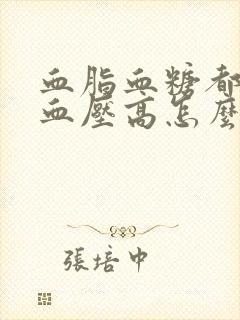 血脂血糖都
血壓高怎麼
張培中